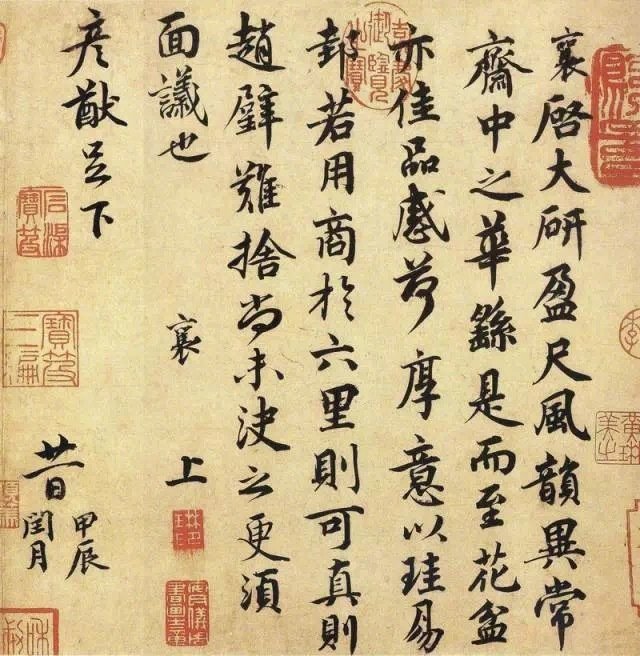 襄啓大研盈尺風韻異常
齋中之華繇是而至花盆
亦佳品感荷厚意以珪易
邽若用商於六里則可真則
趙璧難捨尚未決之更須
面議也
襄上
彥猷足下
廿一日甲辰
閏月
嘉慶御覽之寶
黃琳美之
寶笈三編